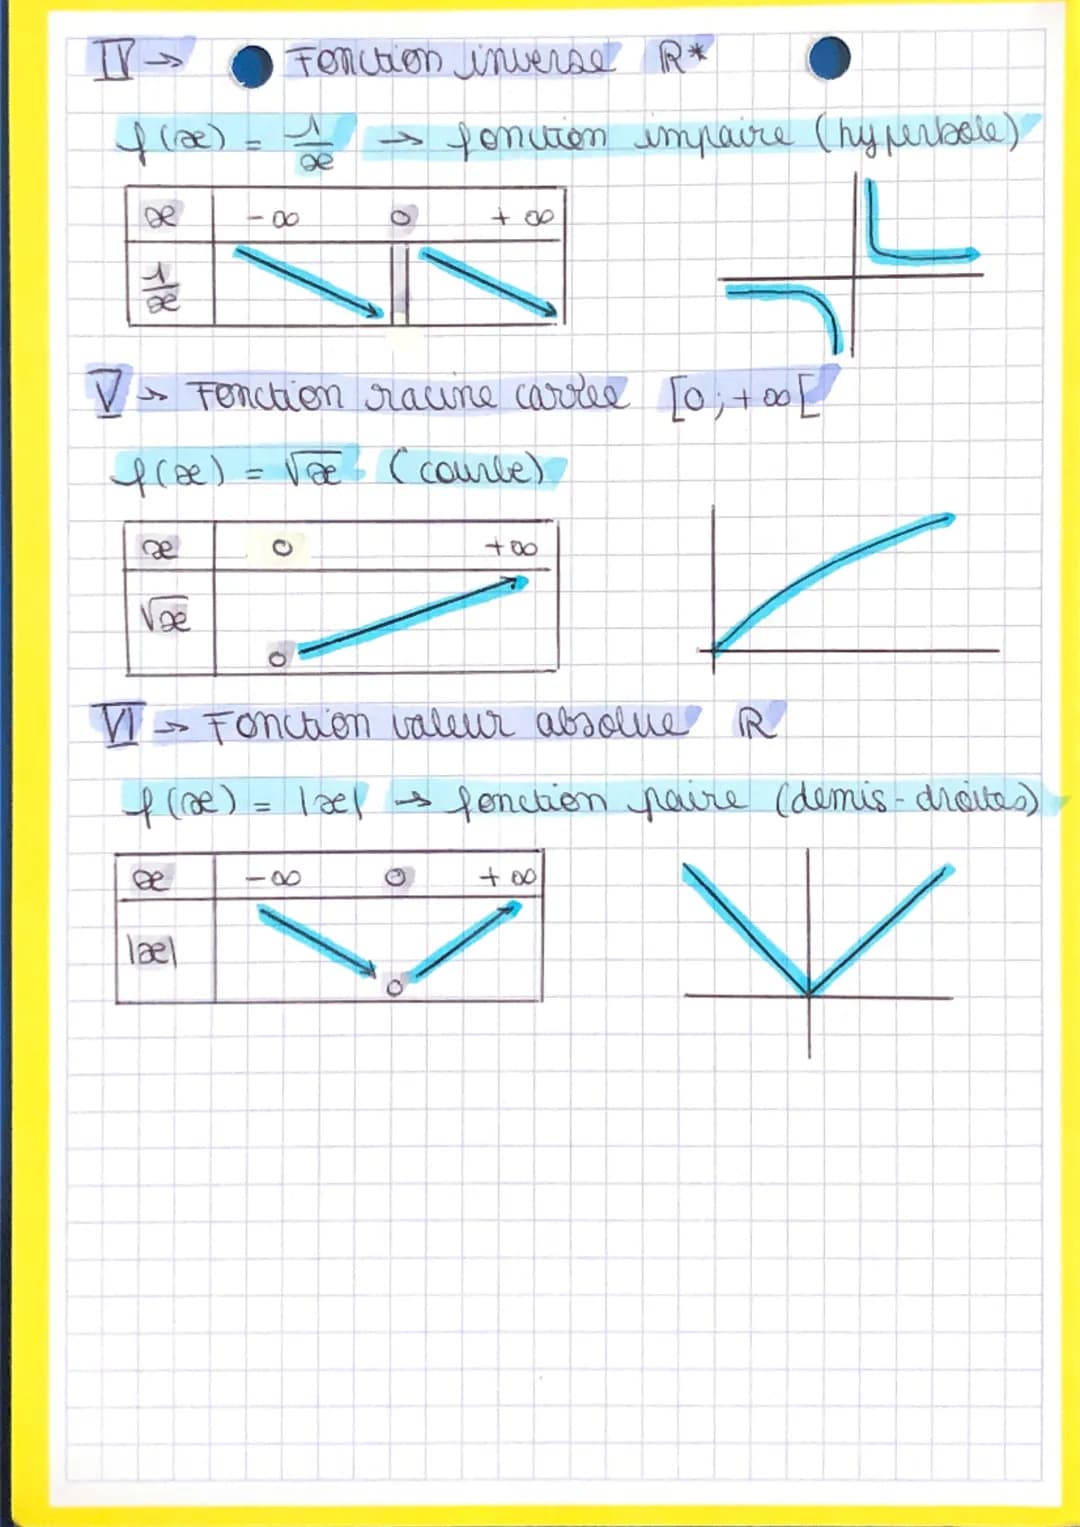 IV → Fonction inverse R*
f(x) = 1/x → fonction impaire (hyperbole)
x -∞ 0 +∞
1/x
V → Fonction racine carrée [0;+∞[
f(x) = √x (courbe)
x 0 +∞
√x
0
VI → Fonction valeur absolue ℝ
f(x) = |x| → fonction paire (demis-droites)
x -∞ 0 +∞
|x|
0